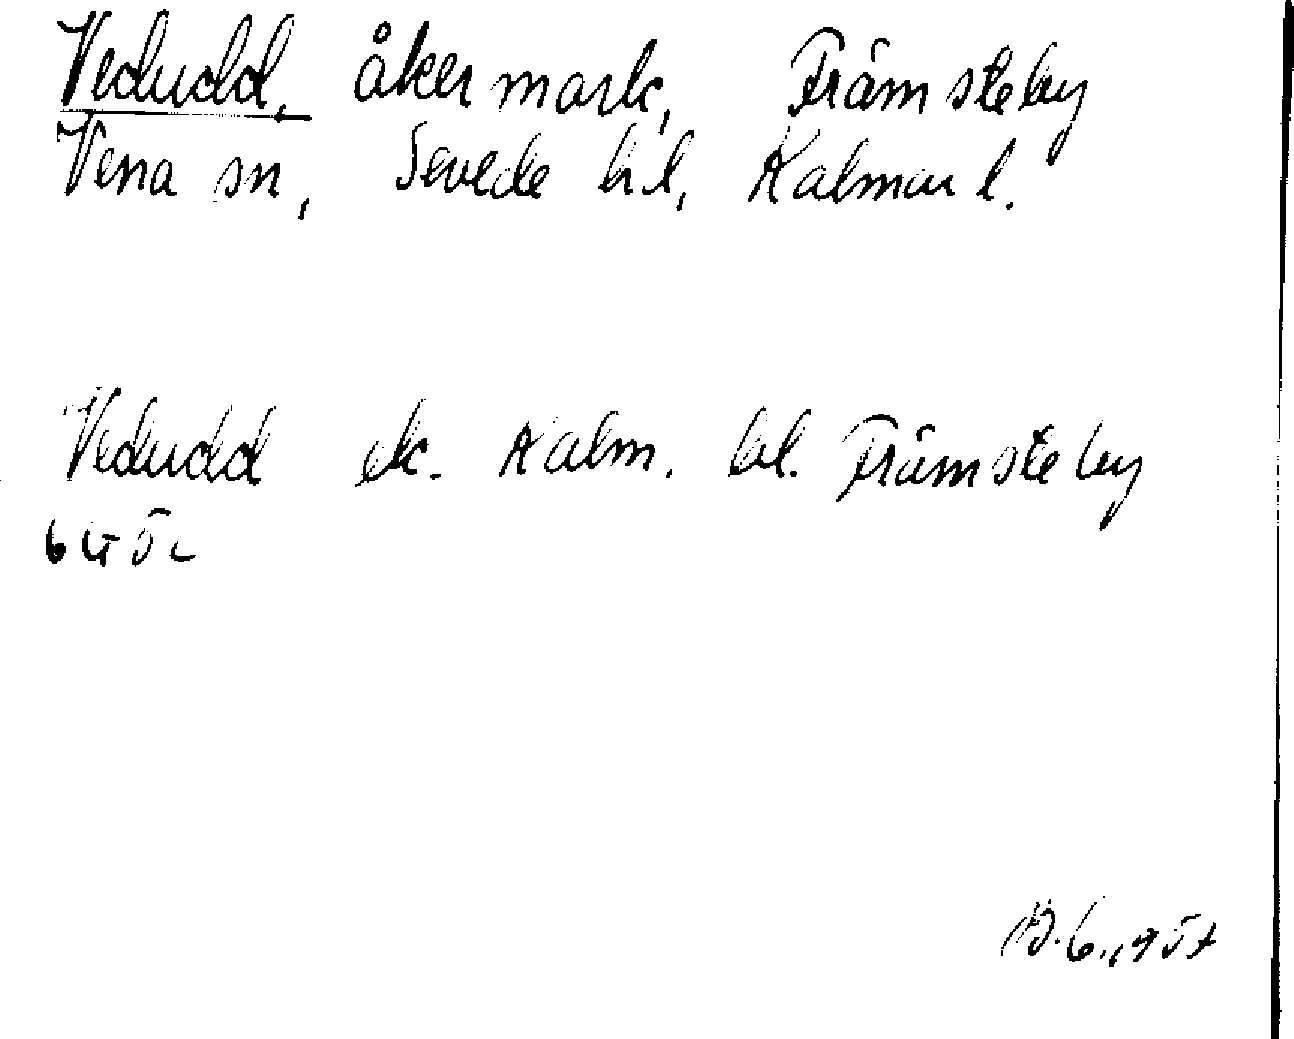 Vedudd, åkermark, Främsteby
Vena sn, Sevede hd, Kalmar l.
Vedudd ek. Kalm. bl. Främsteby